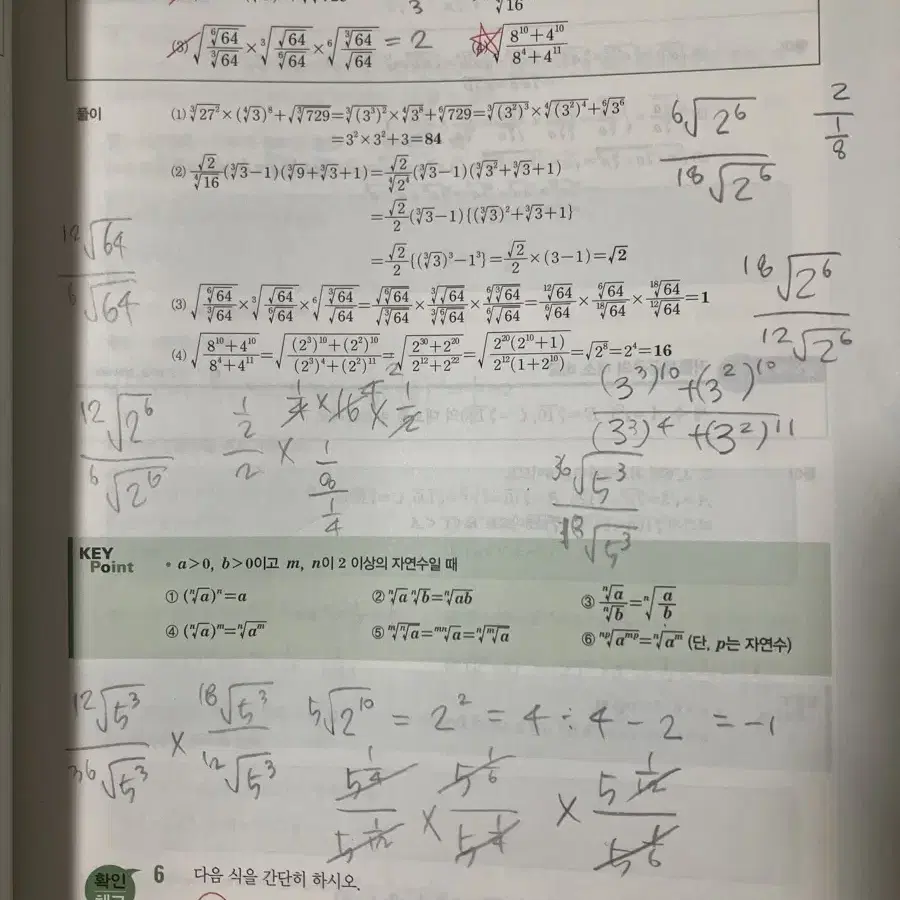 (3) √(⁶√64/³√64) × ³√(√64/⁶√64) × ⁶√(³√64/√64) = 2
(4) √((8¹⁰+4¹⁰)/(8⁴+4¹¹))
풀이
(1) ³√27² × (⁴√3)⁸ + √(³√729) = ³√(3³)² × ⁴√3⁸ + ⁶√729 = ³√(3²)³ × ⁴√(3²)⁴ + ⁶√3⁶
= 3² × 3² + 3 = 84
(2) √2/⁴√16 (³√3−1)(³√9+³√3+1) = √2/⁴√2⁴ (³√3−1)(³√3²+³√3+1)
= √2/2 (³√3−1){(³√3)²+³√3+1}
= √2/2 {(³√3)³−1³} = √2/2 × (3−1) = √2
(3) √(⁶√64/³√64) × ³√(√64/⁶√64) × ⁶√(³√64/√64) = √(⁶√64)/√(³√64) × ³√(√64)/³√(⁶√64) × ⁶√(³√64)/⁶√(√64) = ¹²√64/⁶√64 × ⁶√64/¹⁸√64 × ¹⁸√64/¹²√64 = 1
(4) √((8¹⁰+4¹⁰)/(8⁴+4¹¹)) = √(((2³)¹⁰+(2²)¹⁰)/((2³)⁴+(2²)¹¹)) = √((2³⁰+2²⁰)/(2¹²+2²²)) = √(2²⁰(2¹⁰+1)/2¹²(1+2¹⁰)) = √2⁸ = 2⁴ = 16
⁶√2⁶/¹⁸√2⁶
2/(1/8)
¹²√64/⁶√64
¹⁸√2⁶/¹²√2⁶
((3³)¹⁰+(3²)¹⁰)/((3³)⁴+(3²)¹¹)
¹²√2⁶/⁶√2⁶
³⁶√5³/¹⁸√5³
KEY Point
• a>0, b>0이고 m, n이 2 이상의 자연수일 때
① (ⁿ√a)ⁿ=a ② ⁿ√a ⁿ√b=ⁿ√ab ③ ⁿ√a/ⁿ√b=ⁿ√(a/b)
④ (ⁿ√a)ᵐ=ⁿ√aᵐ ⑤ ᵐ√(ⁿ√a)=ᵐⁿ√a=ⁿ√(ᵐ√a) ⑥ ⁿᵖ√aᵐᵖ=ⁿ√aᵐ (단, p는 자연수)
¹²√5³/³⁶√5³ × ¹⁸√5³/¹²√5³
⁵√2¹⁰ = 2² = 4 ÷ 4 − 2 = −1
확인
6 다음 식을 간단히 하시오.